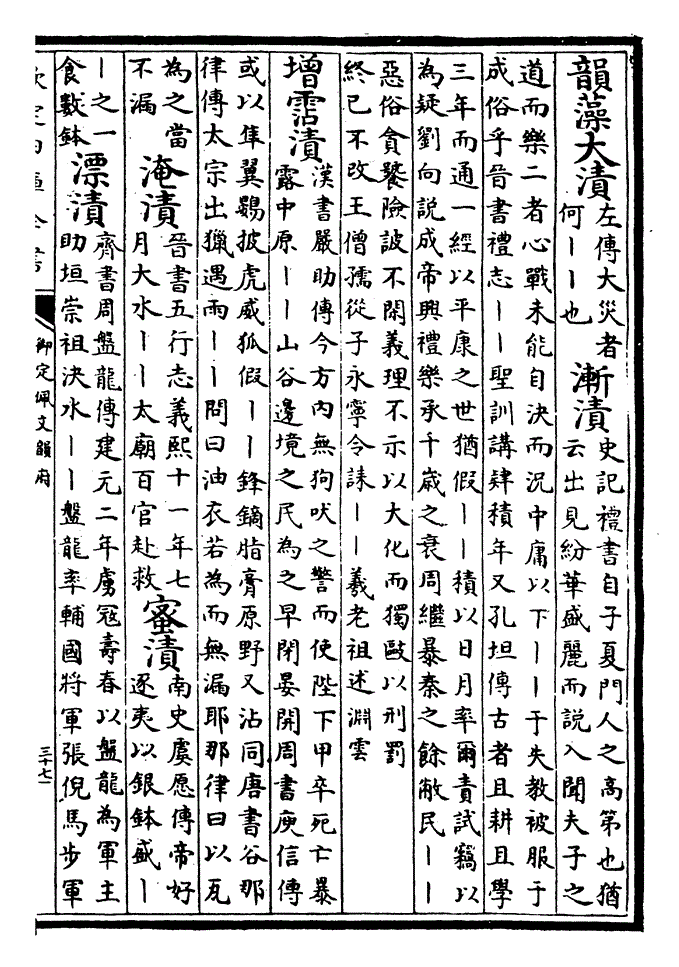 韻藻大漬
左傳大災者
何丨丨也
漸漬
史記禮書自子夏門人之高第也猶
云出見紛華盛麗而說入聞夫子之
道而樂二者心戰未能自決而況中庸以下丨丨于失教被服于
成俗乎晉書禮志丨丨聖訓講肄積年又孔坦傳古者且耕且學
三年而通一經以平康之世猶假丨丨積以日月率爾責試竊以
為疑劉向說成帝興禮樂承千歲之衰周繼暴秦之餘敝民丨丨
惡俗貪饕險詖不閑義理不示以大化而獨敺以刑罰
終已不改王僧孺從子永寧令誄丨丨羲老祖述淵雲
增霑漬
漢書嚴助傳今方內無狗吠之警而使陛下甲卒死亡暴
露中原丨丨山谷邊境之民為之早閉晏開周書庾信傳
或以隼翼鷃披虎威狐假丨丨鋒鏑脂膏原野又沾同唐書谷那
律傳太宗出獵遇雨丨丨問曰油衣若為而無漏耶那律曰以瓦
為之當
不漏
淹漬
晉書五行志義熙十一年七
月大水丨丨太廟百官赴救
蜜漬
南史虞愿傳帝好
逐夷以銀鉢盛丨
丨之一
食數鉢
漂漬
齊書周盤龍傳建元二年虜冦壽春以盤龍為軍主
助垣崇祖決水丨丨盤龍率輔國將軍張倪馬步軍
欽定四庫全書
御定佩文韻府
三十七